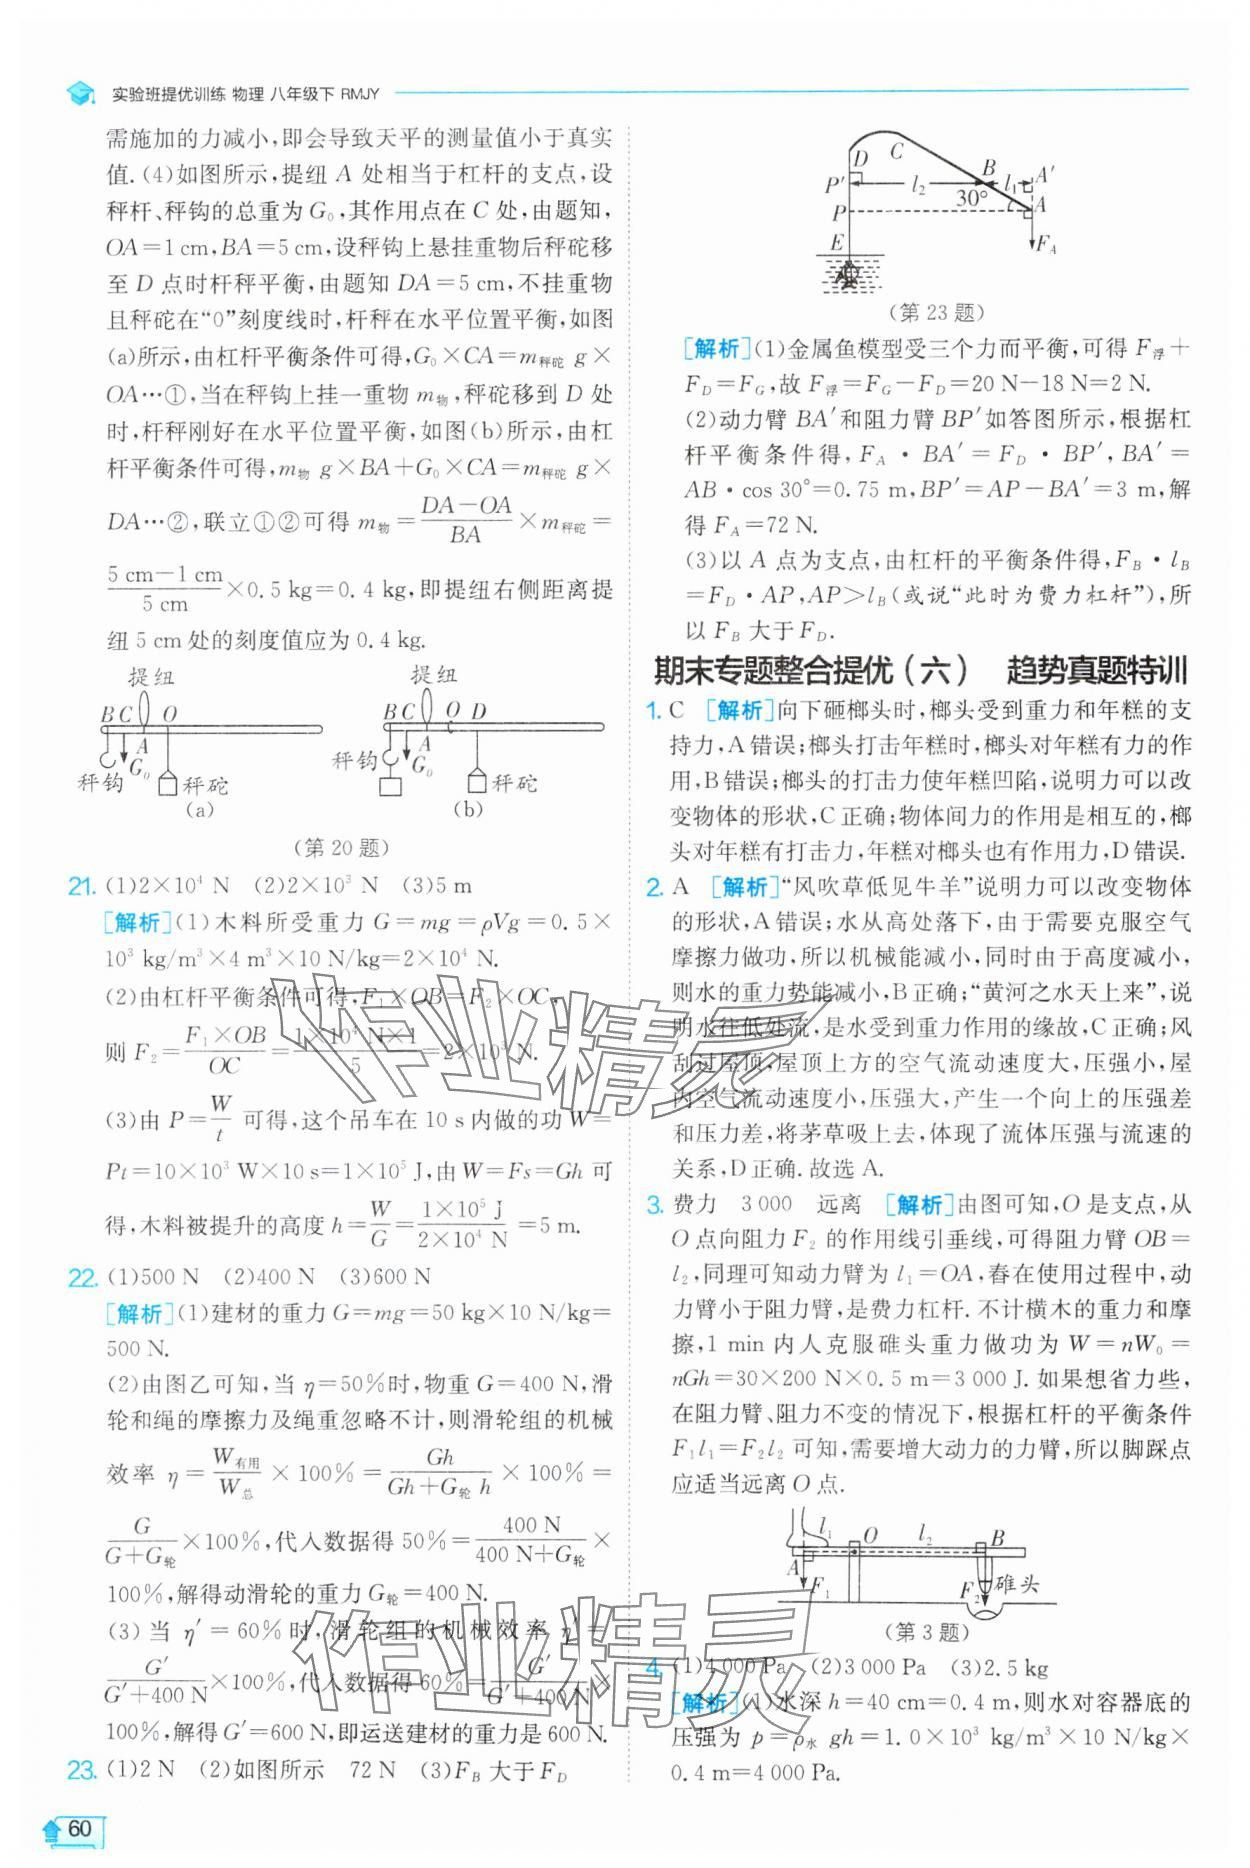 实验班提优训练 物理 八年级下 RMJY
需施加的力减小,即会导致天平的测量值小于真实
值.(4)如图所示,提纽 A 处相当于杠杆的支点,设
秤杆、秤钩的总重为 G₀,其作用点在 C 处,由题知,
OA=1 cm,BA=5 cm,设秤钩上悬挂重物后秤砣移
至 D 点时杆秤平衡,由题知 DA=5 cm,不挂重物
且秤砣在“0”刻度线时,杆秤在水平位置平衡,如图
(a)所示,由杠杆平衡条件可得,G₀×CA=m秤砣 g×
OA…①,当在秤钩上挂一重物 m物,秤砣移到 D 处
时,杆秤刚好在水平位置平衡,如图(b)所示,由杠
杆平衡条件可得,m物 g×BA+G₀×CA=m秤砣 g×
DA…②,联立①②可得 m物=(DA-OA)/BA×m秤砣=
(5 cm-1 cm)/5 cm×0.5 kg=0.4 kg,即提纽右侧距离提
纽 5 cm 处的刻度值应为 0.4 kg.
提纽 提纽
B C O B C O D
A G₀ A G₀
秤钩 秤砣 秤钩 秤砣
(a) (b)
(第 20 题)
21. (1)2×10⁴ N (2)2×10³ N (3)5 m
[解析](1)木料所受重力 G=mg=ρVg=0.5×
10³ kg/m³×4 m³×10 N/kg=2×10⁴ N.
(2)由杠杆平衡条件可得,F₁×OB=F₂×OC,
则 F₂=(F₁×OB)/OC=(1×10⁴ N×1)/5=2×10³ N.
(3)由 P=W/t 可得,这个吊车在 10 s 内做的功 W=
Pt=10×10³ W×10 s=1×10⁵ J,由 W=Fs=Gh 可
得,木料被提升的高度 h=W/G=(1×10⁵ J)/(2×10⁴ N)=5 m.
22. (1)500 N (2)400 N (3)600 N
[解析](1)建材的重力 G=mg=50 kg×10 N/kg=
500 N.
(2)由图乙可知,当 η=50%时,物重 G=400 N,滑
轮和绳的摩擦力及绳重忽略不计,则滑轮组的机械
效率 η=W有用/W总×100%=Gh/(Gh+G轮 h)×100%=
G/(G+G轮)×100%,代入数据得 50%=400 N/(400 N+G轮)×
100%,解得动滑轮的重力 G轮=400 N.
(3)当 η′=60%时,滑轮组的机械效率 η′=
G′/(G′+400 N)×100%,代入数据得 60%=G′/(G′+400 N)×
100%,解得 G′=600 N,即运送建材的重力是 600 N.
23. (1)2 N (2)如图所示 72 N (3)F_B 大于 F_D
60
D C B A′
P′ l₂ l₁
30°
P A
E F_A
(第 23 题)
[解析](1)金属鱼模型受三个力而平衡,可得 F浮+
F_D=F_G,故 F浮=F_G-F_D=20 N-18 N=2 N.
(2)动力臂 BA′和阻力臂 BP′如答图所示,根据杠
杆平衡条件得,F_A·BA′=F_D·BP′,BA′=
AB·cos 30°=0.75 m,BP′=AP-BA′=3 m,解
得 F_A=72 N.
(3)以 A 点为支点,由杠杆的平衡条件得,F_B·l_B
=F_D·AP,AP>l_B(或说“此时为费力杠杆”),所
以 F_B 大于 F_D.
期末专题整合提优(六) 趋势真题特训
1. C [解析]向下砸榔头时,榔头受到重力和年糕的支
持力,A 错误;榔头打击年糕时,榔头对年糕有力的作
用,B 错误;榔头的打击力使年糕凹陷,说明力可以改
变物体的形状,C 正确;物体间力的作用是相互的,榔
头对年糕有打击力,年糕对榔头也有作用力,D 错误.
2. A [解析]“风吹草低见牛羊”说明力可以改变物体
的形状,A 错误;水从高处落下,由于需要克服空气
摩擦力做功,所以机械能减小,同时由于高度减小,
则水的重力势能减小,B 正确;“黄河之水天上来”,说
明水往低处流,是水受到重力作用的缘故,C 正确;风
刮过屋顶,屋顶上方的空气流动速度大,压强小,屋
内空气流动速度小,压强大,产生一个向上的压强差
和压力差,将茅草吸上去,体现了流体压强与流速的
关系,D 正确.故选 A.
3. 费力 3 000 远离 [解析]由图可知,O 是支点,从
O 点向阻力 F₂ 的作用线引垂线,可得阻力臂 OB=
l₂,同理可知动力臂为 l₁=OA,舂在使用过程中,动
力臂小于阻力臂,是费力杠杆.不计横木的重力和摩
擦,1 min 内人克服碓头重力做功为 W=nW₀=
nGh=30×200 N×0.5 m=3 000 J.如果想省力些,
在阻力臂、阻力不变的情况下,根据杠杆的平衡条件
F₁l₁=F₂l₂ 可知,需要增大动力的力臂,所以脚踩点
应适当远离 O 点.
l₁ O l₂ B
A F₁ F₂ 碓头
(第 3 题)
4. (1)4 000 Pa (2)3 000 Pa (3)2.5 kg
[解析](1)水深 h=40 cm=0.4 m,则水对容器底的
压强为 p=ρ水 gh=1.0×10³ kg/m³×10 N/kg×
0.4 m=4 000 Pa.
作业精灵
作业精灵